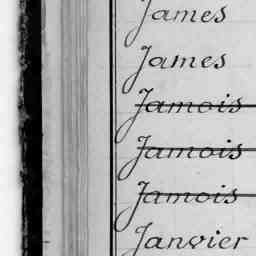 James
James
Jamois
Jamois
Jamois
Janvier